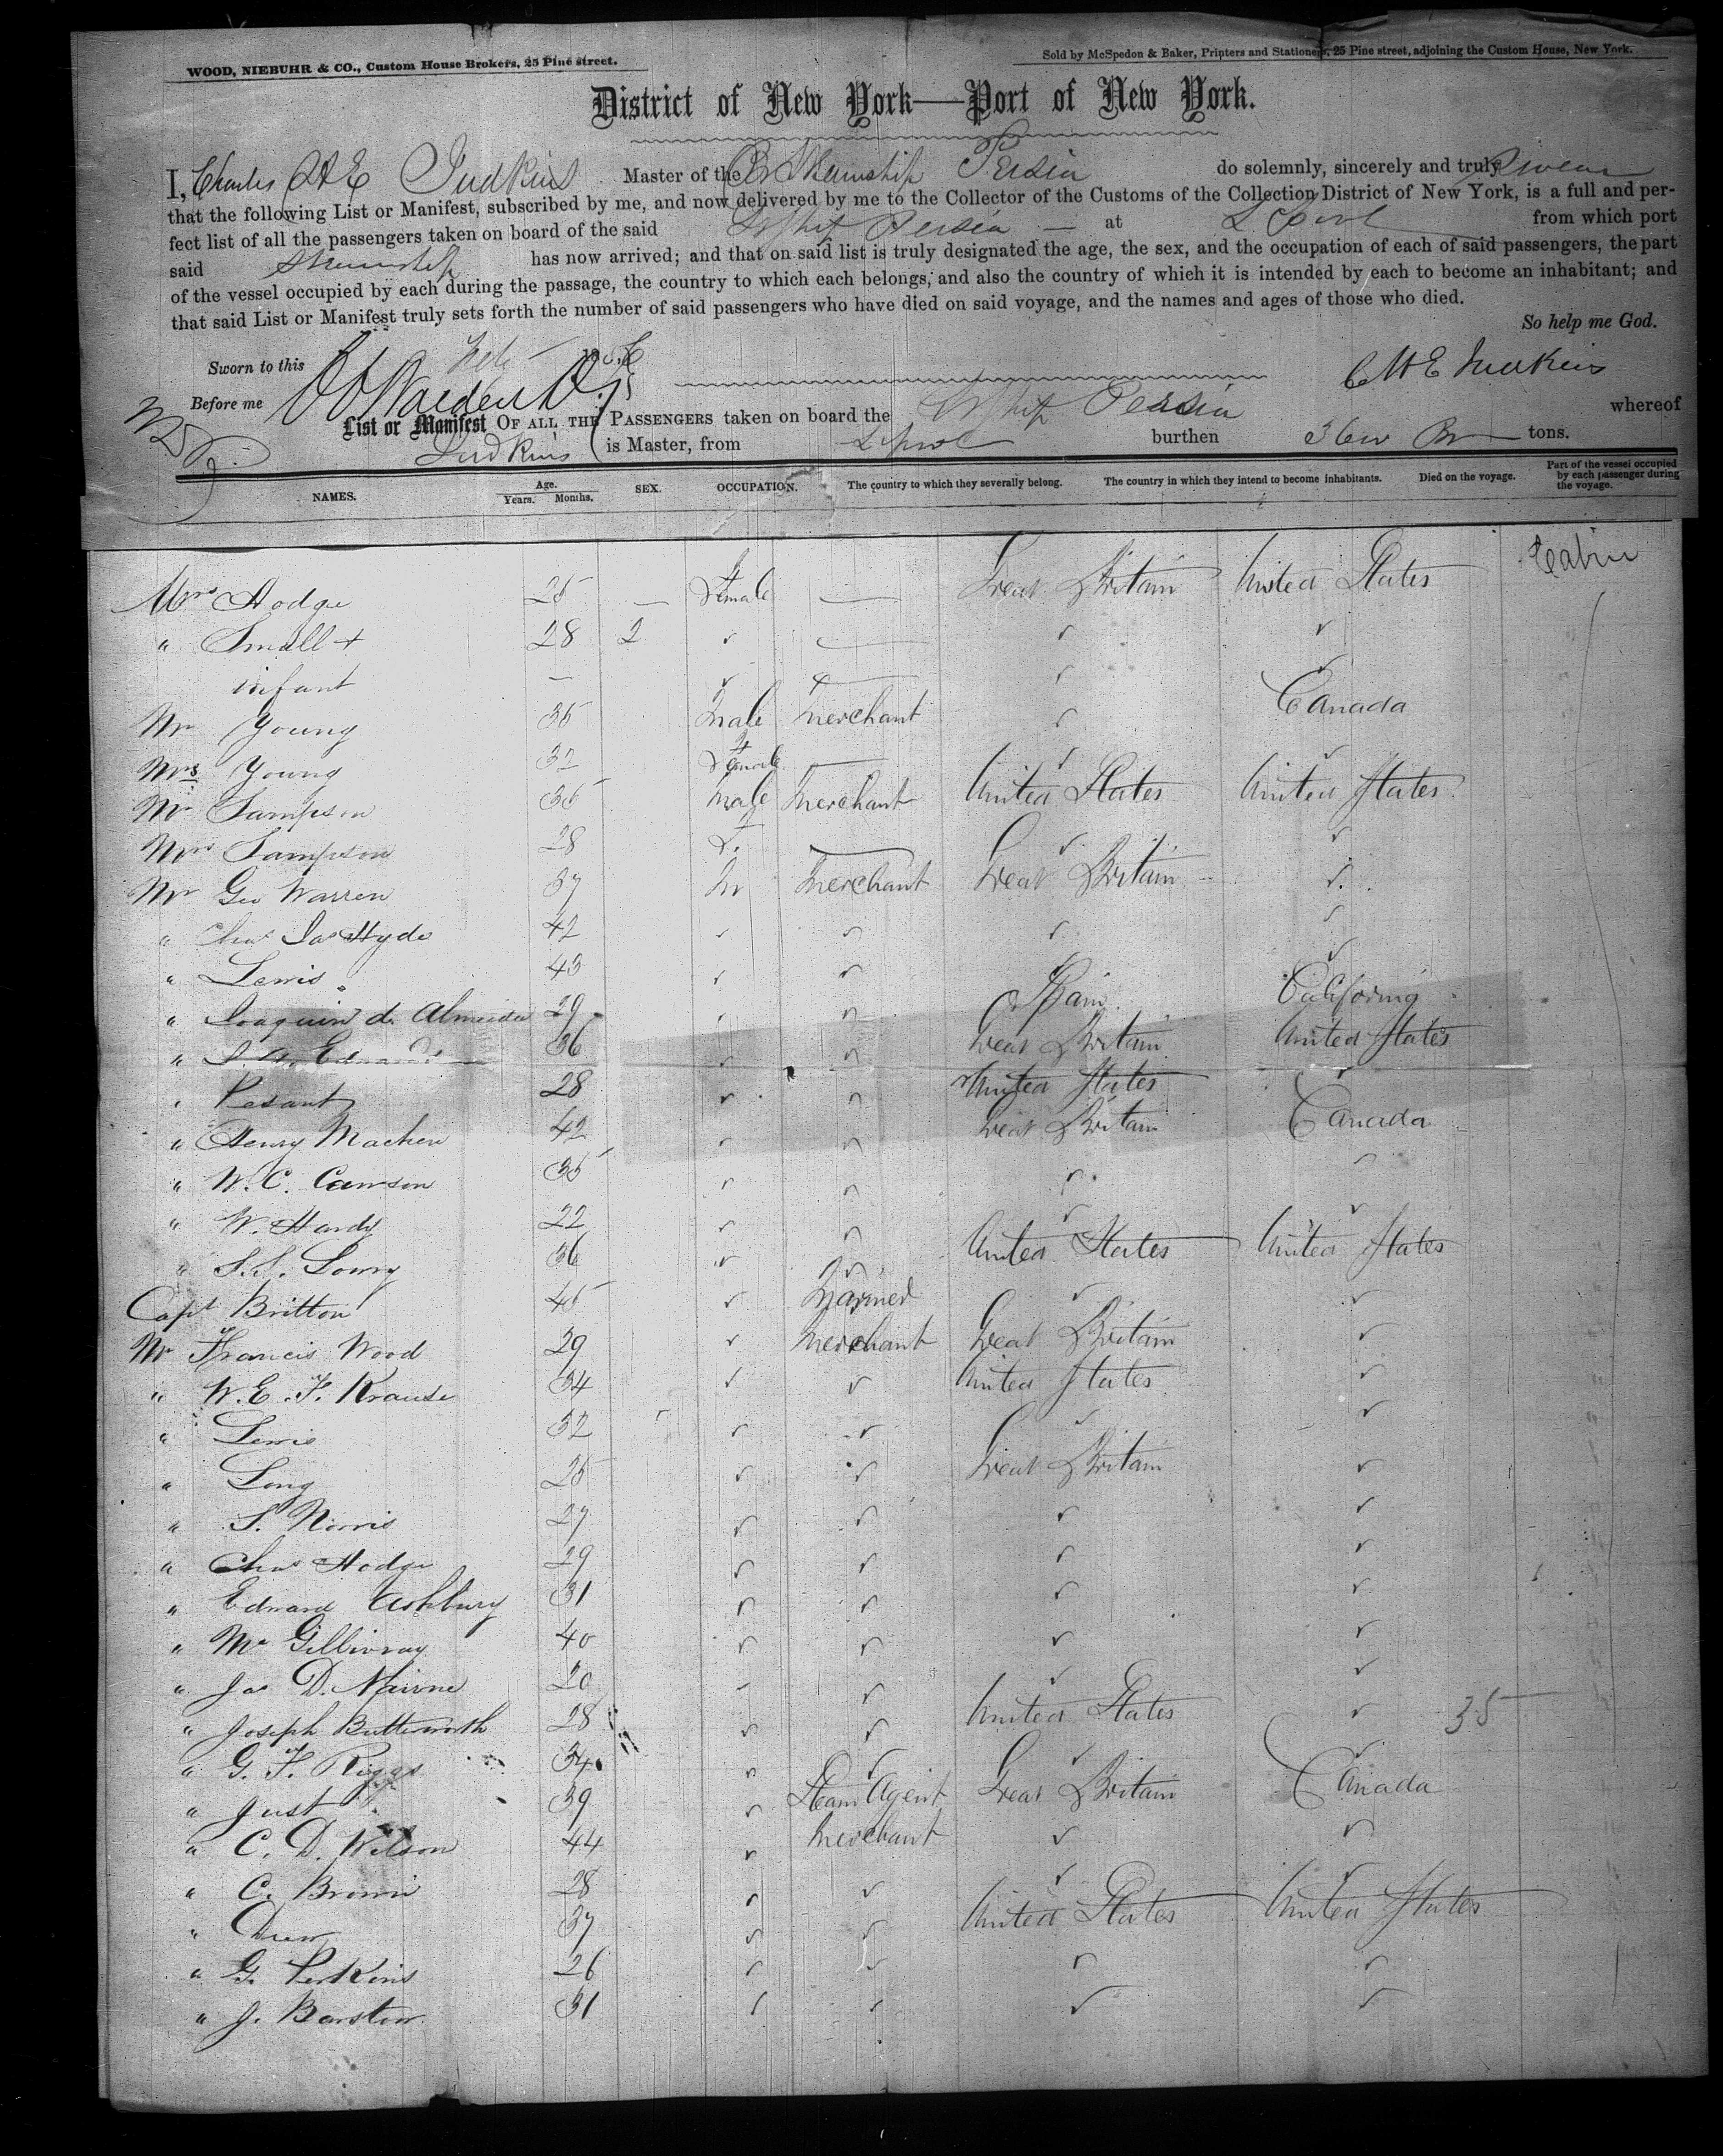 WOOD, NIEBUHR & CO., Custom House Brokers, 25 Pine street.
Sold by McSpedon & Baker, Printers and Stationers, 25 Pine street, adjoining the Custom House, New York.
District of New York—Port of New York.
I, Charles H E Judkins Master of the Br Steamship Persia do solemnly, sincerely and truly swear
that the following List or Manifest, subscribed by me, and now delivered by me to the Collector of the Customs of the Collection District of New York, is a full and per-
fect list of all the passengers taken on board of the said Stship Persia — at L'pool from which port
said Steamship has now arrived; and that on said list is truly designated the age, the sex, and the occupation of each of said passengers, the part
of the vessel occupied by each during the passage, the country to which each belongs, and also the country of which it is intended by each to become an inhabitant; and
that said List or Manifest truly sets forth the number of said passengers who have died on said voyage, and the names and ages of those who died.
So help me God.
Sworn to this Feb 1856
C H E Judkins
Before me
List or Manifest OF ALL THE PASSENGERS taken on board the Stship Persia whereof
Judkins is Master, from L'pool burthen tons.
NAMES. Age. Years. Months. SEX. OCCUPATION. The country to which they severally belong. The country in which they intend to become inhabitants. Died on the voyage. Part of the vessel occupied by each passenger during the voyage.
Mrs Hodge 25 — Female — Great Britain United States Cabin
" Small + 28 2 ✓ — ✓ ✓
infant — ✓ — ✓ ✓
Mr Young 35 Male Merchant ✓ Canada
Mrs Young 32 Female — ✓ ✓
Mr Sampson 35 Male Merchant United States United States
Mrs Sampson 28 F. — ✓ ✓
Mr Geo Warren 37 M Merchant Great Britain ✓
" Chas Jas Hyde 42 ✓ ✓ ✓ ✓
" Lewis 43 ✓ ✓ ✓ ✓
" Joaquin de Almeida 29 ✓ ✓ Spain California
" Edwards 36 ✓ ✓ Great Britain United States
" Pesant 28 ✓ ✓ United States ✓
" Henry Machen 42 ✓ ✓ Great Britain Canada
" W. C. Cawson 35 ✓ ✓ ✓ ✓
" W. Hardy 22 ✓ ✓ ✓ ✓
" S. S. Lowry 36 ✓ ✓ United States United States
Capt Britton 45 ✓ Mariner ✓ ✓
Mr Francis Wood 29 ✓ Merchant Great Britain ✓
" W. E. F. Krause 34 ✓ ✓ United States ✓
" Lewis 32 ✓ ✓ ✓ ✓
" Long 25 ✓ ✓ Great Britain ✓
" S. Norris 27 ✓ ✓ ✓ ✓
" Chas Hodge 29 ✓ ✓ ✓ ✓
" Edward Ashbury 31 ✓ ✓ ✓ ✓
" Mc Gillivray 40 ✓ ✓ ✓ ✓
" Jas D. Nairne 20 ✓ ✓ ✓ ✓
" Joseph Butterworth 28 ✓ ✓ United States ✓ 35
" G. F. Riggs 34 ✓ ✓ ✓ ✓
" Just 39 ✓ Steam Agent Great Britain Canada
" C. D. Wilson 44 ✓ Merchant ✓ ✓
" C. Brown 28 ✓ ✓ ✓ ✓
" Drew 37 ✓ ✓ United States United States
" G. Perkins 26 ✓ ✓ ✓ ✓
" J. Barstow 31 ✓ ✓ ✓ ✓